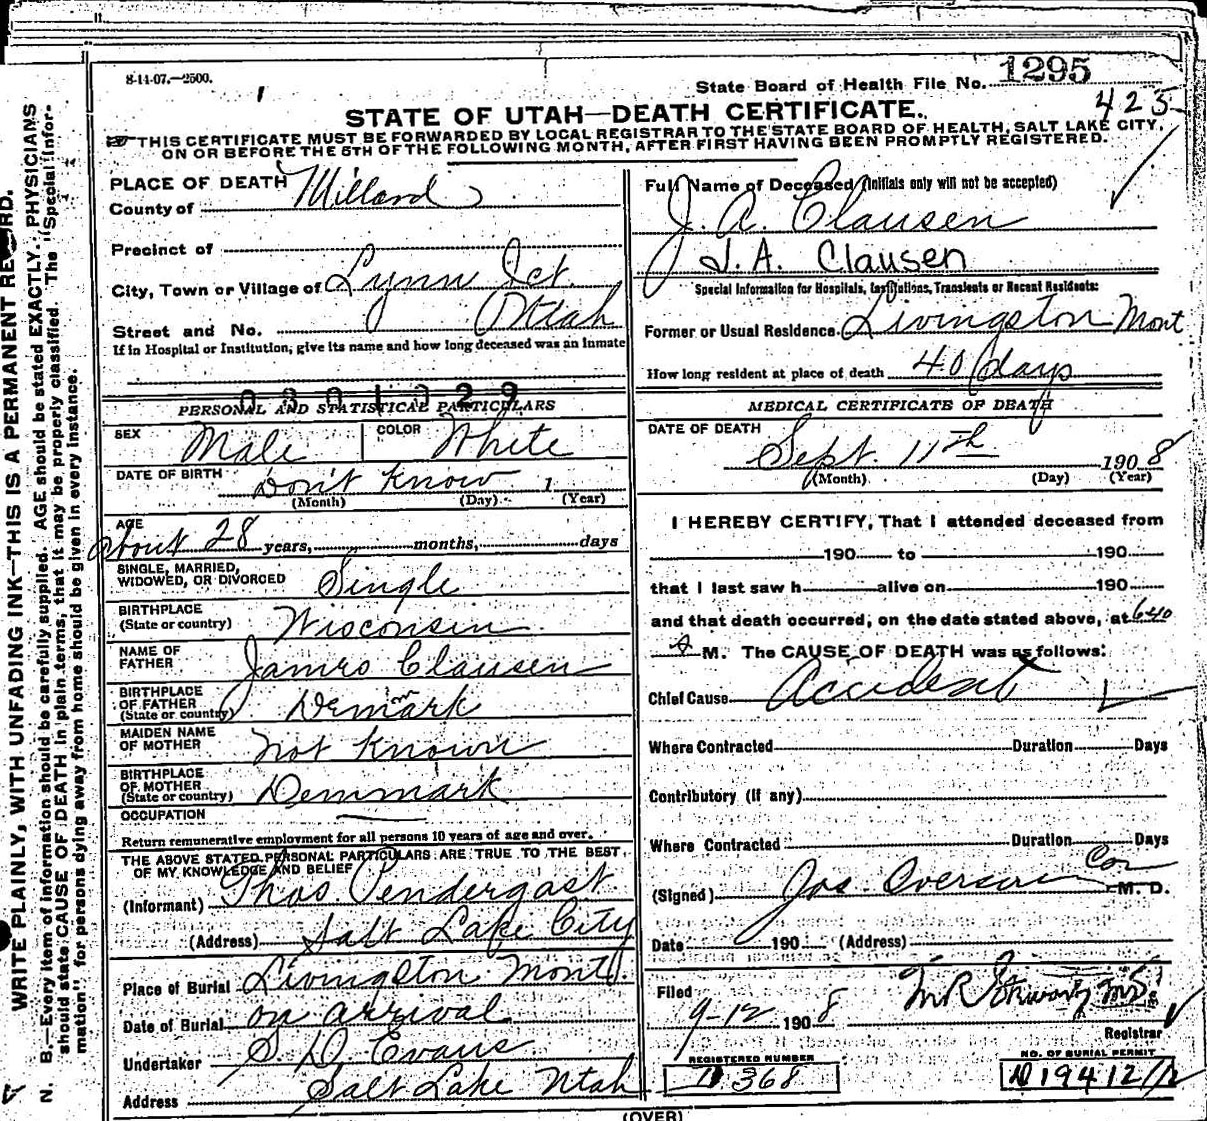 8-14-07.—2500.
State Board of Health File No. 1295
425
STATE OF UTAH—DEATH CERTIFICATE.
THIS CERTIFICATE MUST BE FORWARDED BY LOCAL REGISTRAR TO THE STATE BOARD OF HEALTH, SALT LAKE CITY,
ON OR BEFORE THE 5TH OF THE FOLLOWING MONTH, AFTER FIRST HAVING BEEN PROMPTLY REGISTERED.
WRITE PLAINLY, WITH UNFADING INK—THIS IS A PERMANENT RECORD.
N. B.—Every item of information should be carefully supplied. AGE should be stated EXACTLY. PHYSICIANS
should state CAUSE OF DEATH in plain terms, that it may be properly classified. The "Special Infor-
mation" for persons dying away from home should be given in every instance.
PLACE OF DEATH
County of Millard
Precinct of
City, Town or Village of Lynn Jct.
Street and No. Utah
If in Hospital or Institution, give its name and how long deceased was an inmate
PERSONAL AND STATISTICAL PARTICULARS
SEX Male COLOR White
DATE OF BIRTH Don't Know 1
(Month) (Day) (Year)
AGE
about 28 years, months, days
SINGLE, MARRIED,
WIDOWED, OR DIVORCED Single
BIRTHPLACE
(State or country) Wisconsin
NAME OF
FATHER James Clausen
BIRTHPLACE
OF FATHER
(State or country) Denmark
MAIDEN NAME
OF MOTHER not Known
BIRTHPLACE
OF MOTHER
(State or country) Denmark
OCCUPATION
Return remunerative employment for all persons 10 years of age and over.
THE ABOVE STATED PERSONAL PARTICULARS ARE TRUE TO THE BEST
OF MY KNOWLEDGE AND BELIEF
(Informant) Thos. Pendergast
(Address) Salt Lake City
Place of Burial Livingston Mont.
Date of Burial on arrival
Undertaker S. D. Evans
Address Salt Lake Utah
Full Name of Deceased (Initials only will not be accepted)
J. A. Clausen
J. A. Clausen
Special Information for Hospitals, Institutions, Transients or Recent Residents:
Former or Usual Residence. Livingston Mont
How long resident at place of death 40 days
MEDICAL CERTIFICATE OF DEATH
DATE OF DEATH
Sept. 11th 1908
(Month) (Day) (Year)
I HEREBY CERTIFY, That I attended deceased from
190 to 190
that I last saw h alive on 190
and that death occurred, on the date stated above, at 640
A M. The CAUSE OF DEATH was as follows:
Chief Cause Accident
Where Contracted Duration Days
Contributory (if any)
Where Contracted Duration Days
(Signed) Jos. Overson Cor M. D.
Date 190 (Address)
Filed
9-12 1908
Registrar
REGISTERED NUMBER
368
NO. OF BURIAL PERMIT
(OVER)